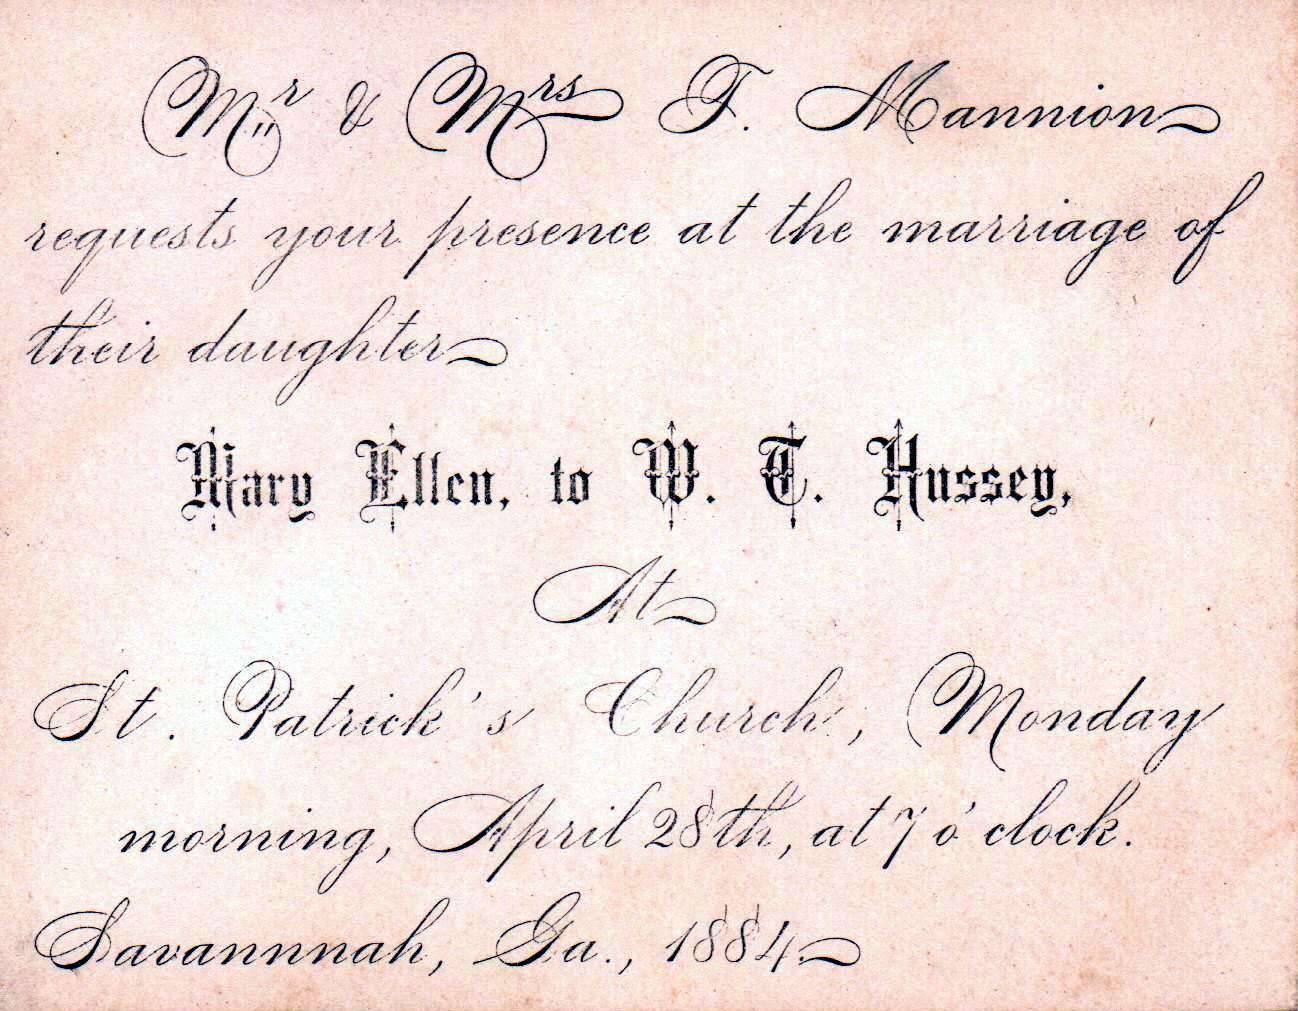 Mr & Mrs F. Mannion
requests your presence at the marriage of
their daughter
Mary Ellen, to W. T. Hussey,
At
St. Patrick's Church, Monday
morning, April 28th, at 7 o'clock.
Savannnah, Ga., 1884.